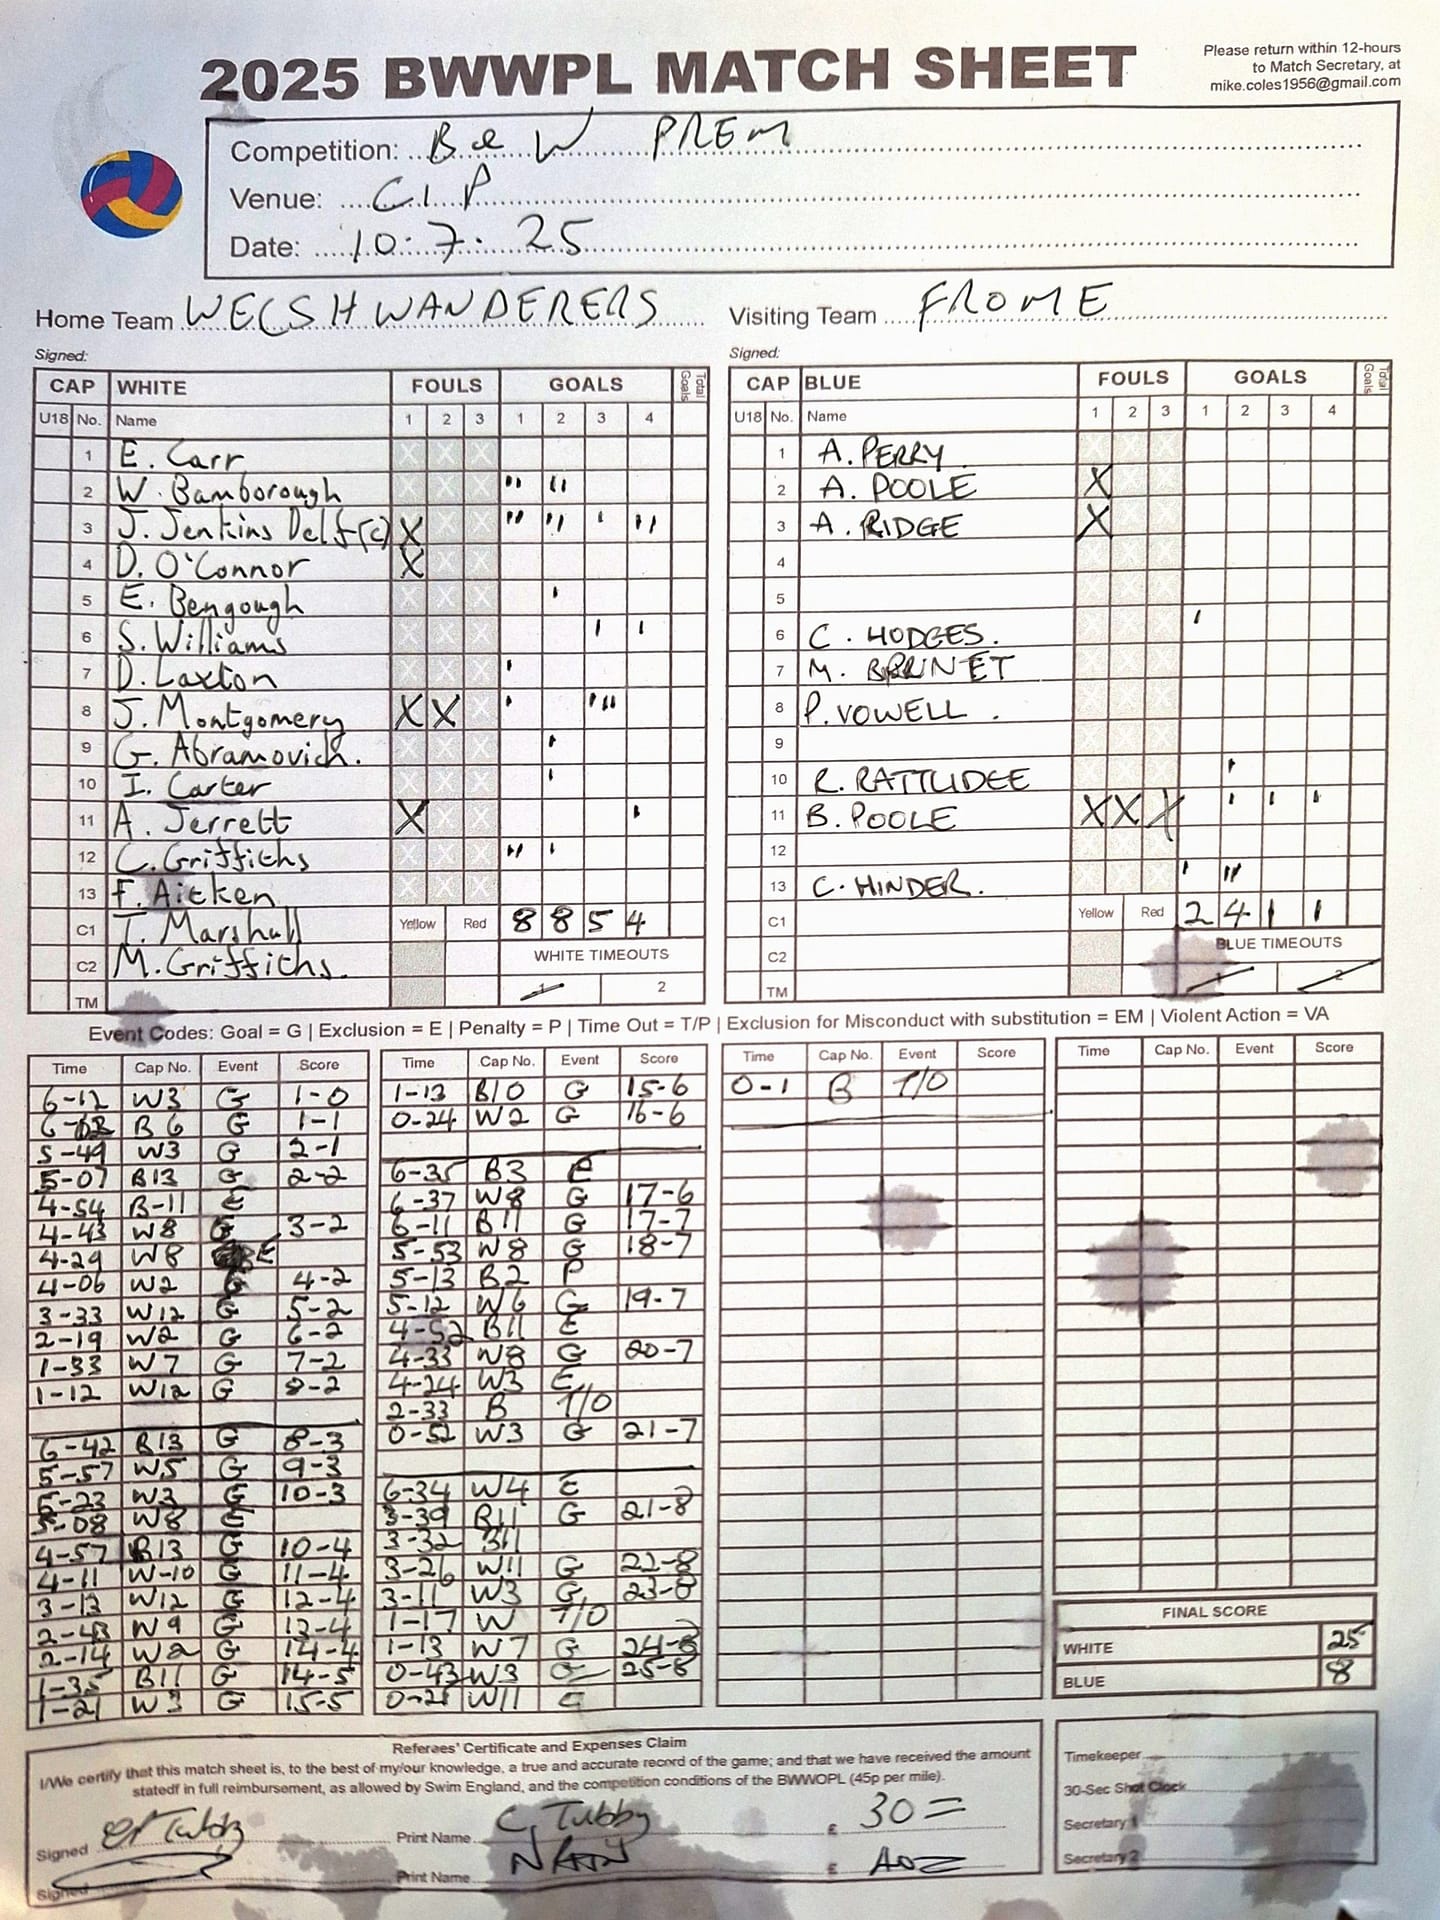 2025 BWWPL MATCH SHEET
Please return within 12-hours
to Match Secretary, at
mike.coles1956@gmail.com
Competition: B & W PREM
Venue: C I P
Date: 10.7.25
Home Team WELSH WANDERERS
Visiting Team FROME
Signed:
Signed:
CAP WHITE FOULS GOALS Total Goals
U18 No. Name 1 2 3 1 2 3 4
1 E. Carr
2 W. Bamborough '' ''
3 J. Jenkins Delf (c) X '' '' ' ''
4 D. O'Connor X
5 E. Bengough '
6 S. Williams ' '
7 D. Laxton '
8 J. Montgomery X X ' '''
9 G. Abramovich. '
10 I. Carter '
11 A. Jerrett X '
12 C. Griffiths '' '
13 F. Aitken
C1 T. Marshall Yellow Red 8 8 5 4
C2 M. Griffiths. WHITE TIMEOUTS
TM 1 2
CAP BLUE FOULS GOALS Total Goals
U18 No. Name 1 2 3 1 2 3 4
1 A. PERRY
2 A. POOLE X
3 A. RIDGE X
4
5
6 C. HODGES. '
7 M. BRUNET
8 P. VOWELL .
9
10 R. RATTLIDEE '
11 B. POOLE X X X ' ' '
12
13 C. HINDER. ' ''
C1 Yellow Red 2 4 1 1
C2 BLUE TIMEOUTS
TM 1 2
Event Codes: Goal = G | Exclusion = E | Penalty = P | Time Out = T/P | Exclusion for Misconduct with substitution = EM | Violent Action = VA
Time Cap No. Event Score
6-12 W3 G 1-0
B6 G 1-1
5-49 W3 G 2-1
5-07 B13 G 2-2
4-54 B-11 E
4-43 W8 G 3-2
4-29 W8 E
4-06 W2 G 4-2
3-33 W12 G 5-2
2-19 W2 G 6-2
1-33 W7 G 7-2
1-12 W12 G 8-2
6-42 B13 G 8-3
5-57 W5 G 9-3
5-23 W3 G 10-3
5-08 W8 E
4-57 B13 G 10-4
4-11 W-10 G 11-4
3-13 W12 G 12-4
2-43 W9 G 13-4
2-14 W2 G 14-4
1-35 B11 G 14-5
1-21 W3 G 15-5
Time Cap No. Event Score
1-13 B10 G 15-6
0-24 W2 G 16-6
6-35 B3 E
6-37 W8 G 17-6
6-11 B11 G 17-7
5-53 W8 G 18-7
5-13 B2 P
5-12 W6 G 19-7
4-52 B11 E
4-33 W8 G 20-7
4-24 W3 E
2-33 B T/O
0-52 W3 G 21-7
6-34 W4 E
3-39 B11 G 21-8
3-32 B11
3-26 W11 G 22-8
3-11 W3 G 23-8
1-17 W T/O
1-13 W7 G 24-8
0-43 W3 G 25-8
0-21 W11 E
Time Cap No. Event Score
0-1 B T/O
Time Cap No. Event Score
FINAL SCORE
WHITE 25
BLUE 8
Referees' Certificate and Expenses Claim
I/We certify that this match sheet is, to the best of my/our knowledge, a true and accurate record of the game; and that we have received the amount
statedf in full reimbursement, as allowed by Swim England, and the competition conditions of the BWWOPL (45p per mile).
Signed Print Name C. Tubby £ 30=
Signed Print Name £
Timekeeper
30-Sec Shot Clock
Secretary 1
Secretary 2